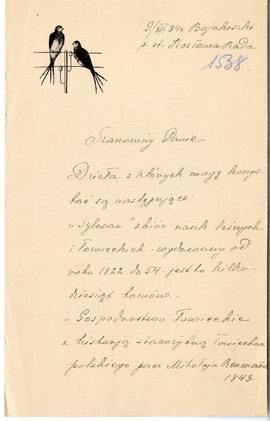 9/XII 84 r. Bojakiszki
p. st. Kozłowa Ruda
1538.
Szanowny Panie
Dzieła z których mogę korzy-
stać są następujące:
"Sylwan" zbiór nauk leśnych
i łowieckich - wydawany od
roku 1822 do 54 - jest to kilka-
dziesiąt tomów.
"Gospodarstwo Łowieckie
z historyą starożytną łowiectwa
polskiego przez Mikołaja Reumana
1845.